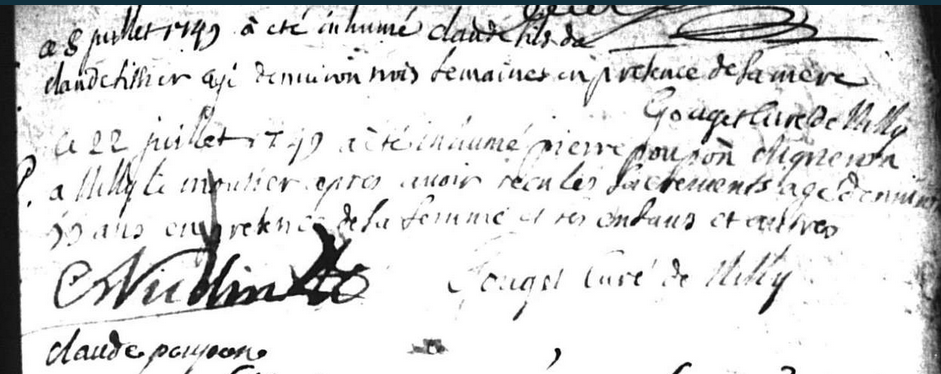 ce 8 juillet 1749 à été inhumé claude fils de
claude tissier agé denuiron trois semaines en presence de sa mere
Gouget Curé De Milly
Ce 22 juillet 1749 a été inhumé pierre poupon vigneron
a Milly le moutier apres auoir reçu les Sacrements agé denuiron
ans en presence de sa femme et ses enfans et autres
Gouget Curé de Milly
claude poupon